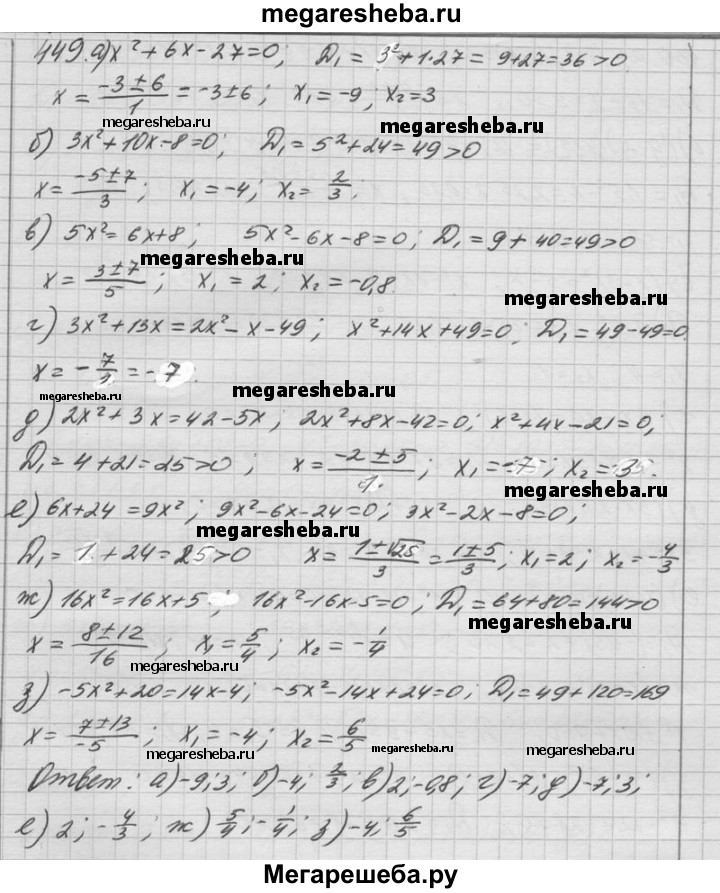 megaresheba.ru
449. а) x² + 6x - 27 = 0; D₁ = 3² + 1·27 = 9+27 = 36 > 0
x = (-3 ± 6)/1 = -3 ± 6; x₁ = -9; x₂ = 3
megaresheba.ru megaresheba.ru
б) 3x² + 10x - 8 = 0; D₁ = 5² + 24 = 49 > 0
x = (-5 ± 7)/3; x₁ = -4; x₂ = 2/3;
в) 5x² = 6x + 8; 5x² - 6x - 8 = 0; D₁ = 9 + 40 = 49 > 0
megaresheba.ru
x = (3 ± 7)/5; x₁ = 2; x₂ = -0,8.
megaresheba.ru
г) 3x² + 13x = 2x² - x - 49; x² + 14x + 49 = 0; D₁ = 49 - 49 = 0
x = -7/1 = -7.
megaresheba.ru megaresheba.ru
д) 2x² + 3x = 42 - 5x; 2x² + 8x - 42 = 0; x² + 4x - 21 = 0;
megaresheba.ru
D₁ = 4 + 21 = 25 > 0; x = (-2 ± 5)/1; x₁ = -7; x₂ = 3.
megaresheba.ru
е) 6x + 24 = 9x²; 9x² - 6x - 24 = 0; 3x² - 2x - 8 = 0;
megaresheba.ru
D₁ = 1 + 24 = 25 > 0 x = (1 ± √25)/3 = (1 ± 5)/3; x₁ = 2; x₂ = -4/3
ж) 16x² = 16x + 5; 16x² - 16x - 5 = 0; D₁ = 64 + 80 = 144 > 0
megaresheba.ru
x = (8 ± 12)/16; x₁ = 5/4; x₂ = -1/4
megaresheba.ru megaresheba.ru
з) -5x² + 20 = 14x - 4; -5x² - 14x + 24 = 0; D₁ = 49 + 120 = 169
x = (7 ± 13)/-5; x₁ = -4; x₂ = 6/5
megaresheba.ru megaresheba.ru
Ответ: а) -9; 3; б) -4; 2/3; в) 2; -0,8; г) -7; д) -7; 3;
megaresheba.ru megaresheba.ru
е) 2; -4/3; ж) 5/4; -1/4; з) -4; 6/5
Мегарешеба.ру